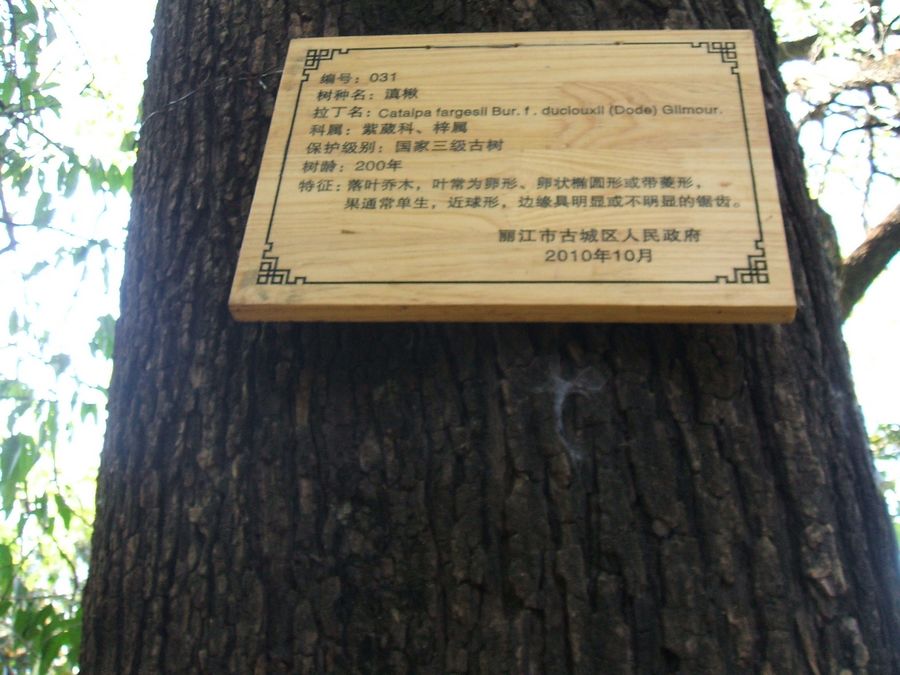 编号：031
树种名：滇楸
拉丁名：Catalpa fargesii Bur. f. duclouxii (Dode) Gilmour.
科属：紫葳科、梓属
保护级别：国家三级古树
树龄：200年
特征：落叶乔木，叶常为卵形、卵状椭圆形或带菱形，
果通常单生，近球形，边缘具明显或不明显的锯齿。
丽江市古城区人民政府
2010年10月